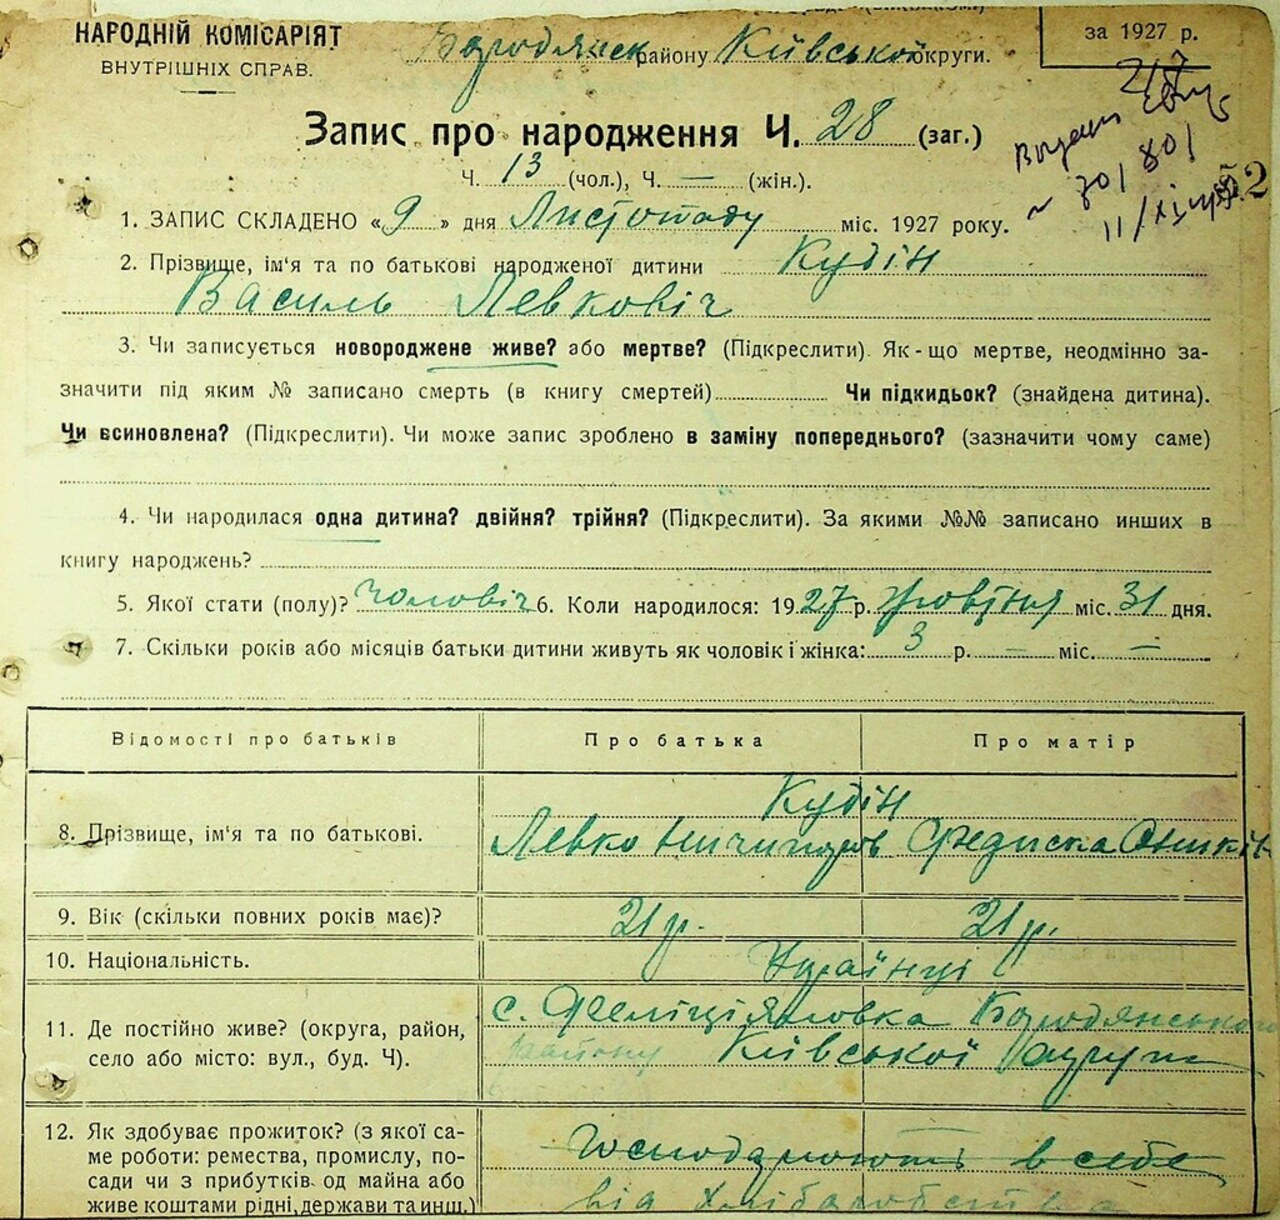 НАРОДНІЙ КОМІСАРІЯТ
ВНУТРІШНІХ СПРАВ.
Бородянськ району Київської округи.
за 1927 р.
Запис про народження Ч. 28 (заг.)
Ч. 13 (чол.), Ч. — (жін.).
1. ЗАПИС СКЛАДЕНО «9» дня Листопаду міс. 1927 року.
2. Прізвище, ім'я та по батькові народженої дитини Кудін
Василь Левковіч
3. Чи записується новороджене живе? або мертве? (Підкреслити). Як-що мертве, неодмінно за-
значити під яким № записано смерть (в книгу смертей) Чи підкидьок? (знайдена дитина).
Чи всиновлена? (Підкреслити). Чи може запис зроблено в заміну попереднього? (зазначити чому саме)
4. Чи народилася одна дитина? двійня? трійня? (Підкреслити). За якими №№ записано инших в
книгу народжень?
5. Якої стати (полу)? чоловіч 6. Коли народилося: 1927 р. жовтня міс. 31 дня.
7. Скільки років або місяців батьки дитини живуть як чоловік і жінка: 3 р. — міс. —
Відомості про батьків Про батька Про матір
8. Прізвище, ім'я та по батькові.
Кудін
Левко Ничипоров
9. Вік (скільки повних років має)? 21 р. 21 р.
10. Національність. Українці
11. Де постійно живе? (округа, район,
село або місто: вул., буд. Ч).
с. Феліціяновка Бородянського
району Київської округи
12. Як здобуває прожиток? (з якої са-
ме роботи: ремества, промислу, по-
сади чи з прибутків од майна або
живе коштами рідні, держави та инш.)
Господарюють в себе
від хліборобства